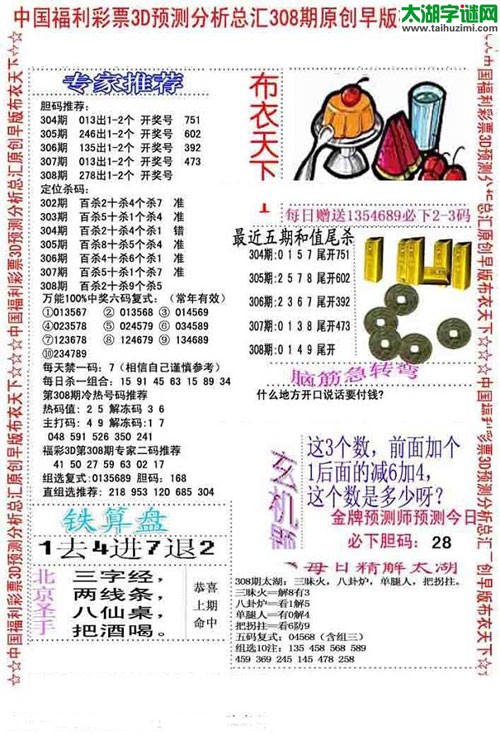 中国福利彩票3D预测分析总汇308期原创早版
太湖字谜网
www.taihuzimi.com
专家推荐
胆码推荐:
304期 013出1-2个 开奖号 751
305期 246出1-2个 开奖号 602
306期 135出1-2个 开奖号 392
307期 013出1-2个 开奖号 473
308期 278出1-2个 开奖号
定位杀码:
302期 百杀2十杀4个杀7 准
303期 百杀5十杀1个杀4 准
304期 百杀2十杀4个杀1 错
305期 百杀0十杀5个杀8 准
306期 百杀4十杀0个杀1 准
307期 百杀1十杀1个杀7 准
308期 百杀2十杀9个杀5
万能100%中奖六码复式:（常年有效）
①013567 ②013568 ③014569
④023578 ⑤024579 ⑥034589
⑦123678 ⑧124679 ⑨134689
⑩234789
每天禁一码: 7（相信自己谨慎参考）
每日杀一组合: 15 91 45 63 15 89 34
第308期冷热号码推荐
热码值: 2 5 解冻码 3 6
主打码: 4 9 解冻码:1 7
048 591 526 350 241
福彩3D第308期专家二码推荐
41 50 27 59 63 02 17
组选复式: 0135689 胆码: 168
直组选推荐: 218 953 120 685 304
铁算盘
1去4进7退2
北京圣手
三字经，
两线条，
八仙桌，
把酒喝。
恭喜
上期
命中
布衣天下
1
每日赠送1354689必下2-3码
最近五期和值尾杀
304期:0 1 5 7 尾开751
305期:2 5 7 8 尾开602
306期:2 3 6 7 尾开392
307期:0 1 3 8 尾开473
308期:0 1 4 9 尾开
脑筋急转弯
什么地方开口说话要付钱?
玄机
这3个数，前面加个
1后面的减6加4，
这个数是多少呀?
金牌预测师预测今日
必下胆码: 28
每日精解太湖
308期太湖: 三昧火，八卦炉，单腿人，把拐拄。
三昧火==解8有3
八卦炉==看1解5
单腿人==有0解4
把拐拄==看6防9
五码复式: 04568（含组三）
组选10注: 135 458 568 589
459 369 245 145 478 258
☆☆中国福利彩票3D预测分析总汇原创早版布衣天下☆☆